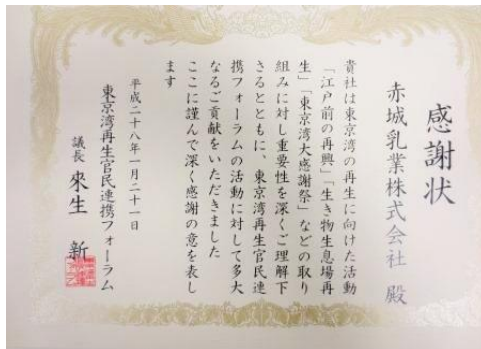 感謝状
赤城乳業株式会社 殿
貴社は東京湾の再生に向けた活動
「江戸前の再興」「生き物生息場再
生」「東京湾大感謝祭」などの取り
組みに対し重要性を深くご理解下
さるとともに、東京湾再生官民連
携フォーラムの活動に対して多大
なるご貢献をいただきました
ここに謹んで深く感謝の意を表し
ます
平成二十八年一月二十一日
東京湾再生官民連携フォーラム
議長 來生 新